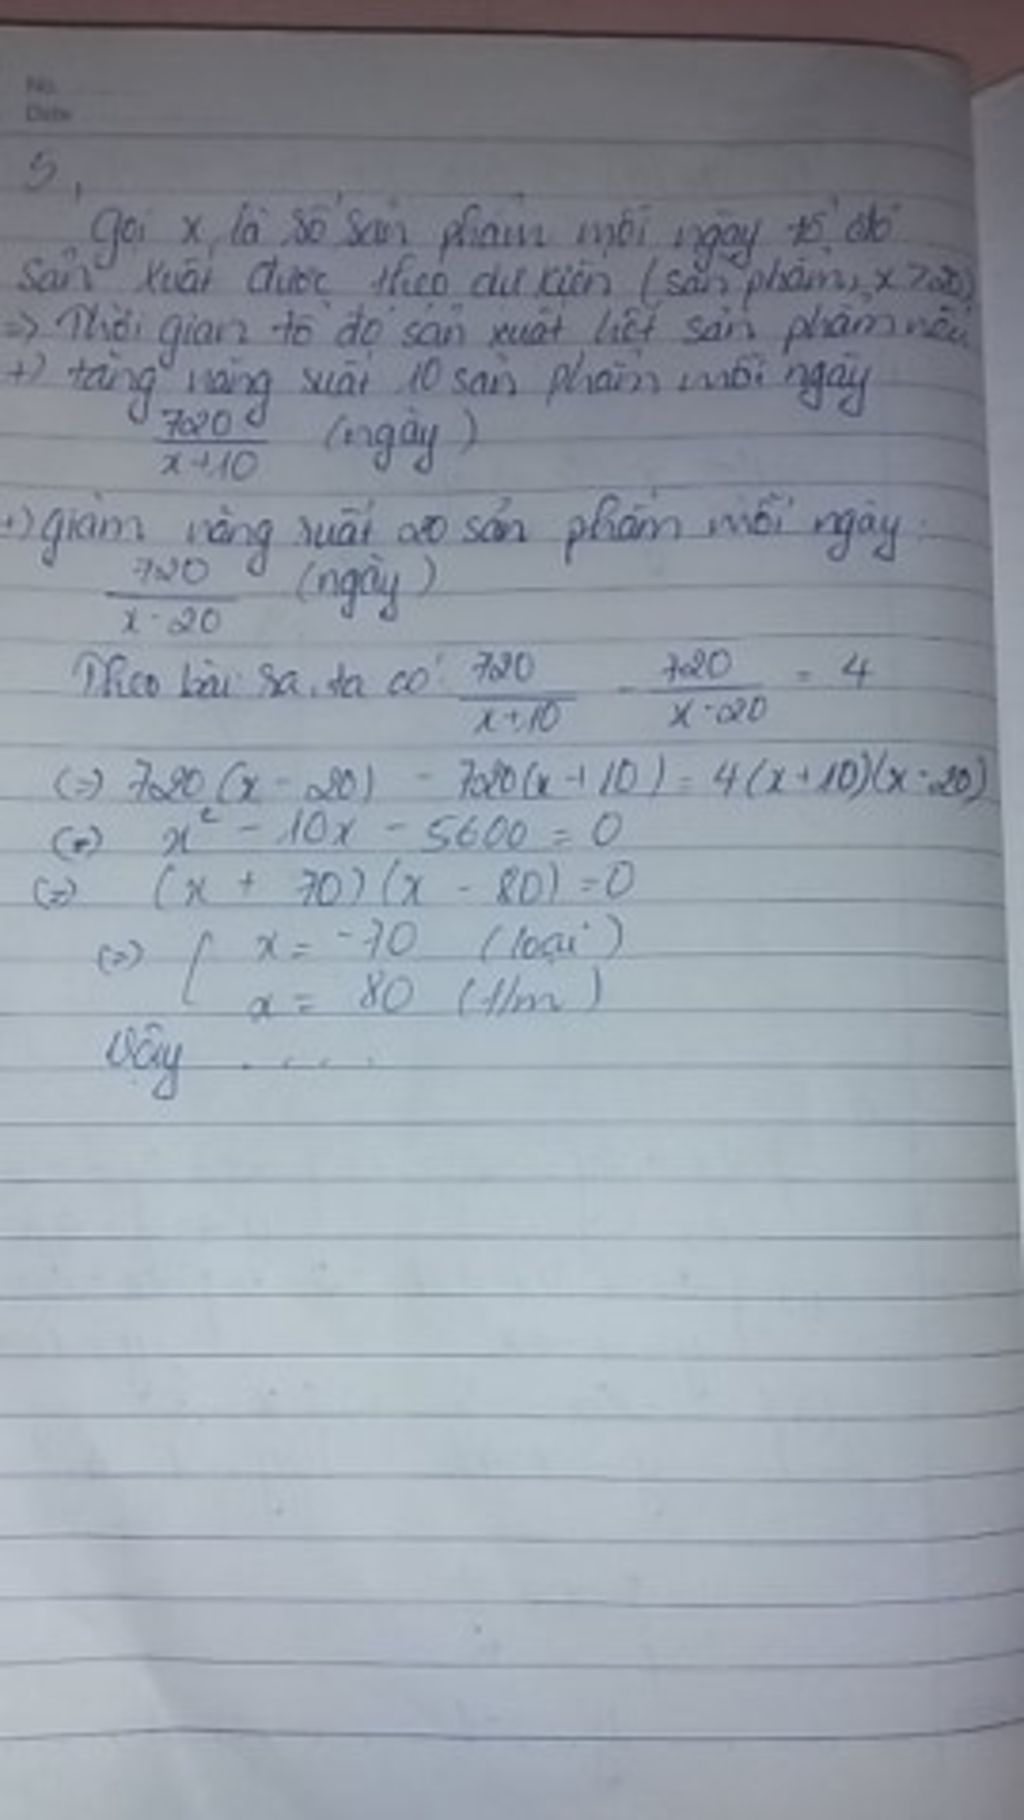 No.
Date
5,
Gọi x là số sản phẩm mỗi ngày tổ đó
sản xuất được theo dự kiện (sản phẩm, x > 20)
=> Thời gian tổ đó sản xuất hết sản phẩm nếu
+) tăng năng suất 10 sản phẩm mỗi ngày
720/x+10 (ngày)
+) giảm năng suất 20 sản phẩm mỗi ngày:
720/x-20 (ngày)
Theo bài ra, ta có 720/x+10 - 720/x-20 = 4
(=) 720(x - 20) - 720(x + 10) = 4(x+10)(x-20)
(=) x² - 10x - 5600 = 0
(=) (x + 70)(x - 80) = 0
(=) [ x = -70 (loại)
x = 80 (t/m)
Vậy ....